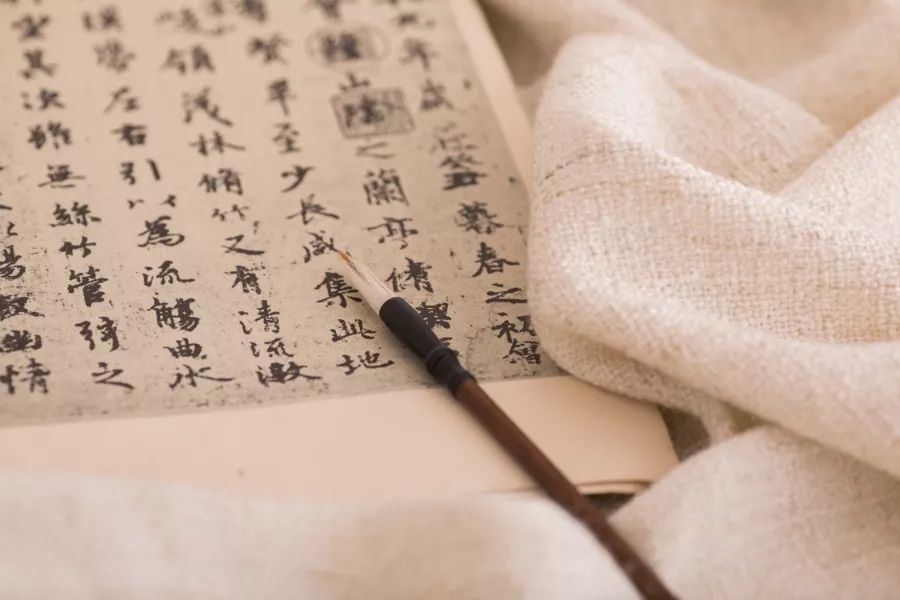 年歲在癸丑暮春之初會
稽山陰之蘭亭脩禊
賢畢至少長咸集此地
峻領茂林脩竹又有清流激
暎帶左右引以為流觴曲水
坐其次雖無絲竹管弦之
暢敘幽情